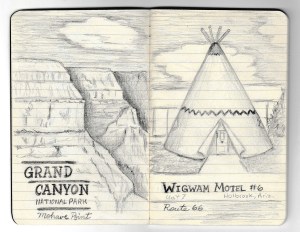 GRAND
CANYON
NATIONAL PARK
Mohave Point
WIGWAM MOTEL #6
Holbrook, Ariz.
Route 66